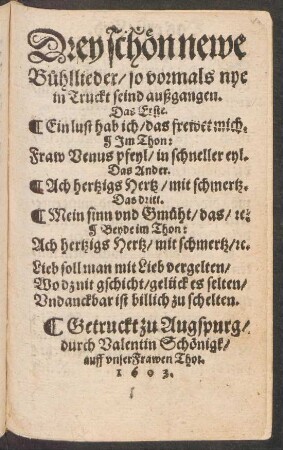 Drey schön newe
Bühllieder / so vormals nye
in Truckt seind außgangen.
Das Erste.
¶ Ein lust hab ich / das frewet mich.
¶ Im Thon:
Fraw Venus pfeyl / in schneller eyl.
Das Ander.
¶ Ach hertzigs Hertz / mit schmertz.
Das dritt.
¶ Mein sinn vnd Gmüht / das / ꝛc.
¶ Beyde im Thon:
Ach hertzigs Hertz / mit schmertz / ꝛc.
Lieb soll man mit Lieb vergelten /
Wo dz nit gschicht / gelück es selten /
Vndanckbar ist billich zu schelten.
¶ Getruckt zu Augspurg /
durch Valentin Schönigk /
auff vnser Frawen Thor.
1603.